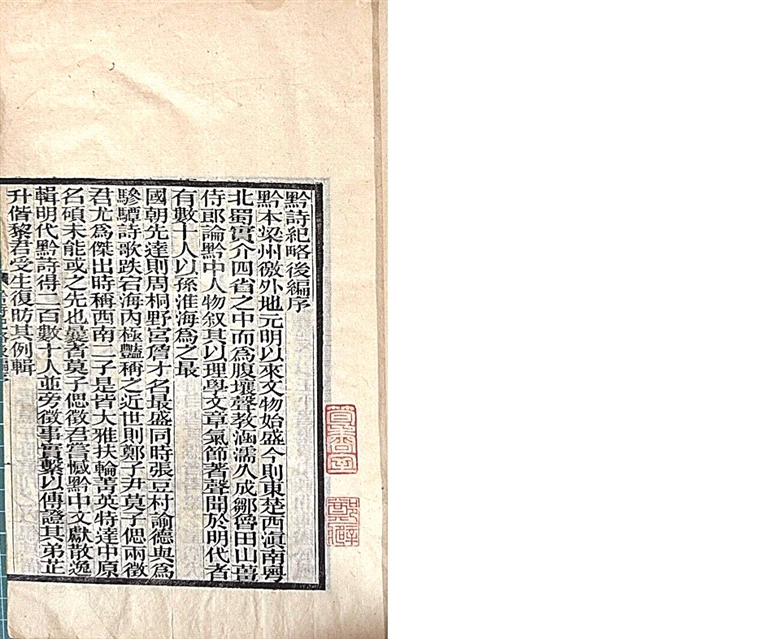 黔詩紀略後編序
黔本梁州徼外地元明以來文物始盛今則東楚西滇南粵
北蜀實介四省之中而為腹壤聲教涵濡久成鄒魯田山畺
侍郎論黔中人物叙其以理學文章氣節著聲聞於明代者
有數十人以孫淮海為之最
國朝先達則周桐野宮詹才名最盛同時張豆村諭德與為
驂驔詩歌跌宕海內極豔稱之近世則鄭子尹莫子偲兩徵
君尤為傑出時稱西南二子是皆大雅扶輪菁英特達中原
名碩未能或之先也曩者莫子偲徵君嘗慽黔中文獻散逸
輯明代黔詩得二百數十人並旁徵事實繫以傳證其弟芷
升偕黎君受生復昉其例輯